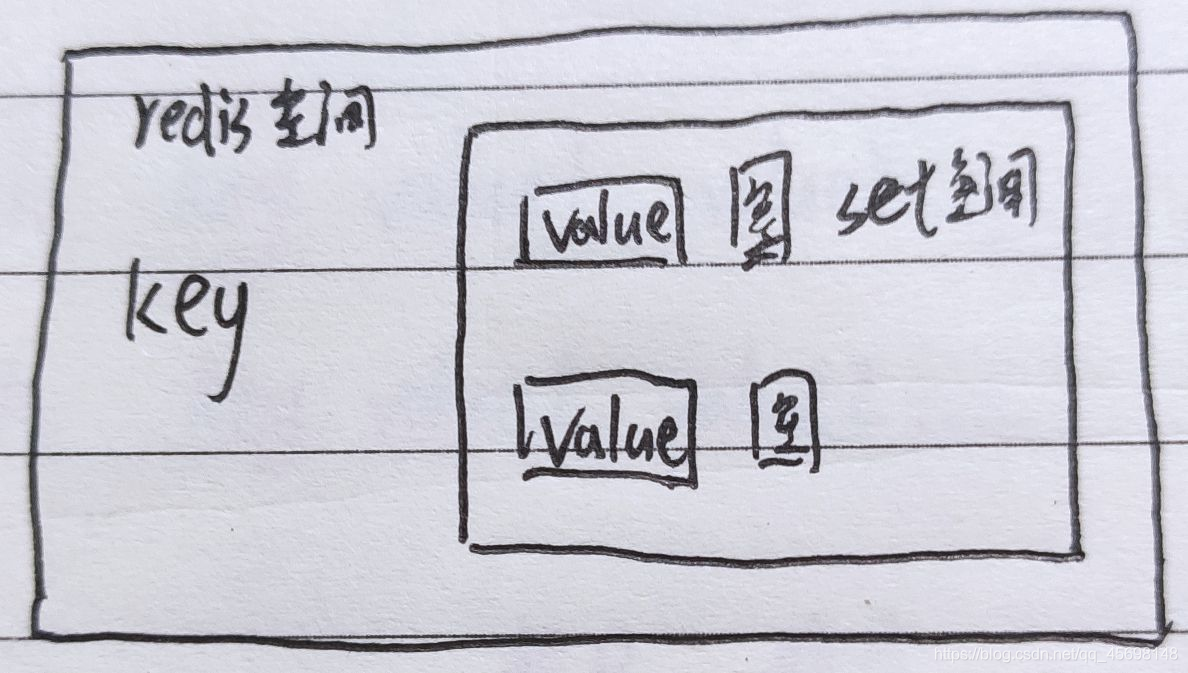 redis空间
value 空 set空间
key
value 空
https://blog.csdn.net/qq_45698148